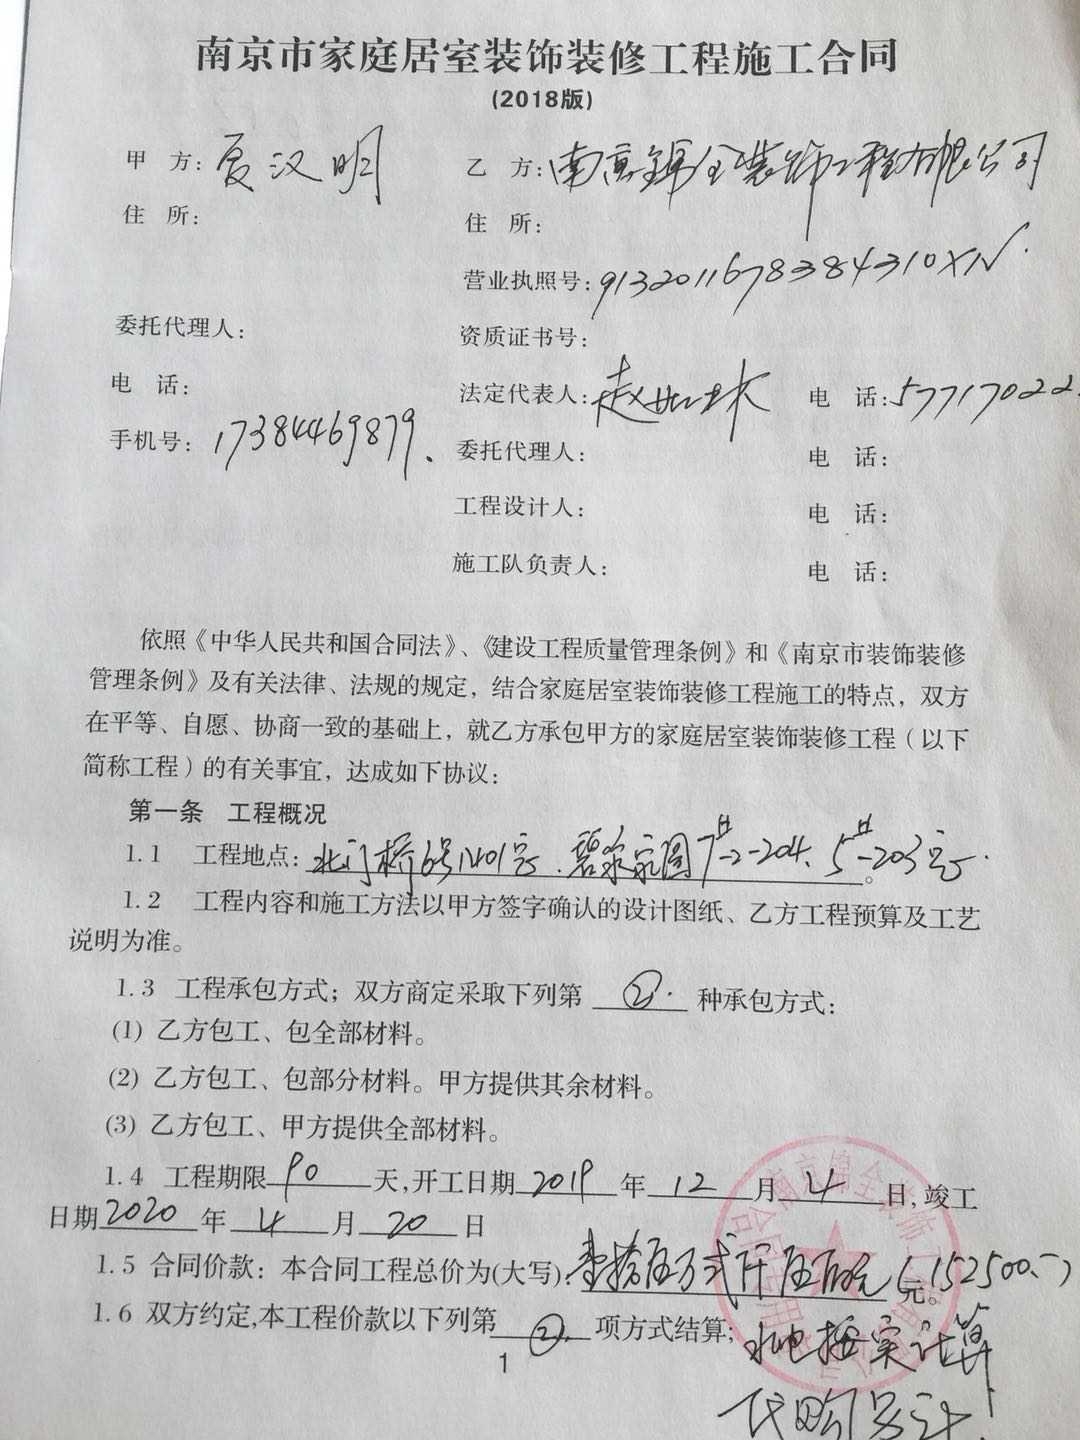 南京市家庭居室装饰装修工程施工合同
(2018版)
甲 方: 夏汉明 乙 方: 南京锦全装饰工程有限公司
住 所: 住 所:
营业执照号: 9132011678384310XN
委托代理人: 资质证书号:
电 话: 法定代表人: 电 话: 57717022
手机号: 17384469879. 委托代理人: 电 话:
工程设计人: 电 话:
施工队负责人: 电 话:
依照《中华人民共和国合同法》、《建设工程质量管理条例》和《南京市装饰装修
管理条例》及有关法律、法规的规定，结合家庭居室装饰装修工程施工的特点，双方
在平等、自愿、协商一致的基础上，就乙方承包甲方的家庭居室装饰装修工程（以下
简称工程）的有关事宜，达成如下协议:
第一条 工程概况
1.1 工程地点: 北门桥6号1401室.碧 家园7-2-204、5-203室.
1.2 工程内容和施工方法以甲方签字确认的设计图纸、乙方工程预算及工艺
说明为准。
1.3 工程承包方式；双方商定采取下列第 ②. 种承包方式:
(1) 乙方包工、包全部材料。
(2) 乙方包工、包部分材料。甲方提供其余材料。
(3) 乙方包工、甲方提供全部材料。
1.4 工程期限 90 天,开工日期 2019 年 12 月 4 日,竣工
日期 2020 年 4 月 20 日
1.5 合同价款: 本合同工程总价为(大写): 壹拾伍万贰仟伍百元 (元。152500.-)
1.6 双方约定,本工程价款以下列第 ②. 项方式结算; 水电按实计算
代购另计.
1